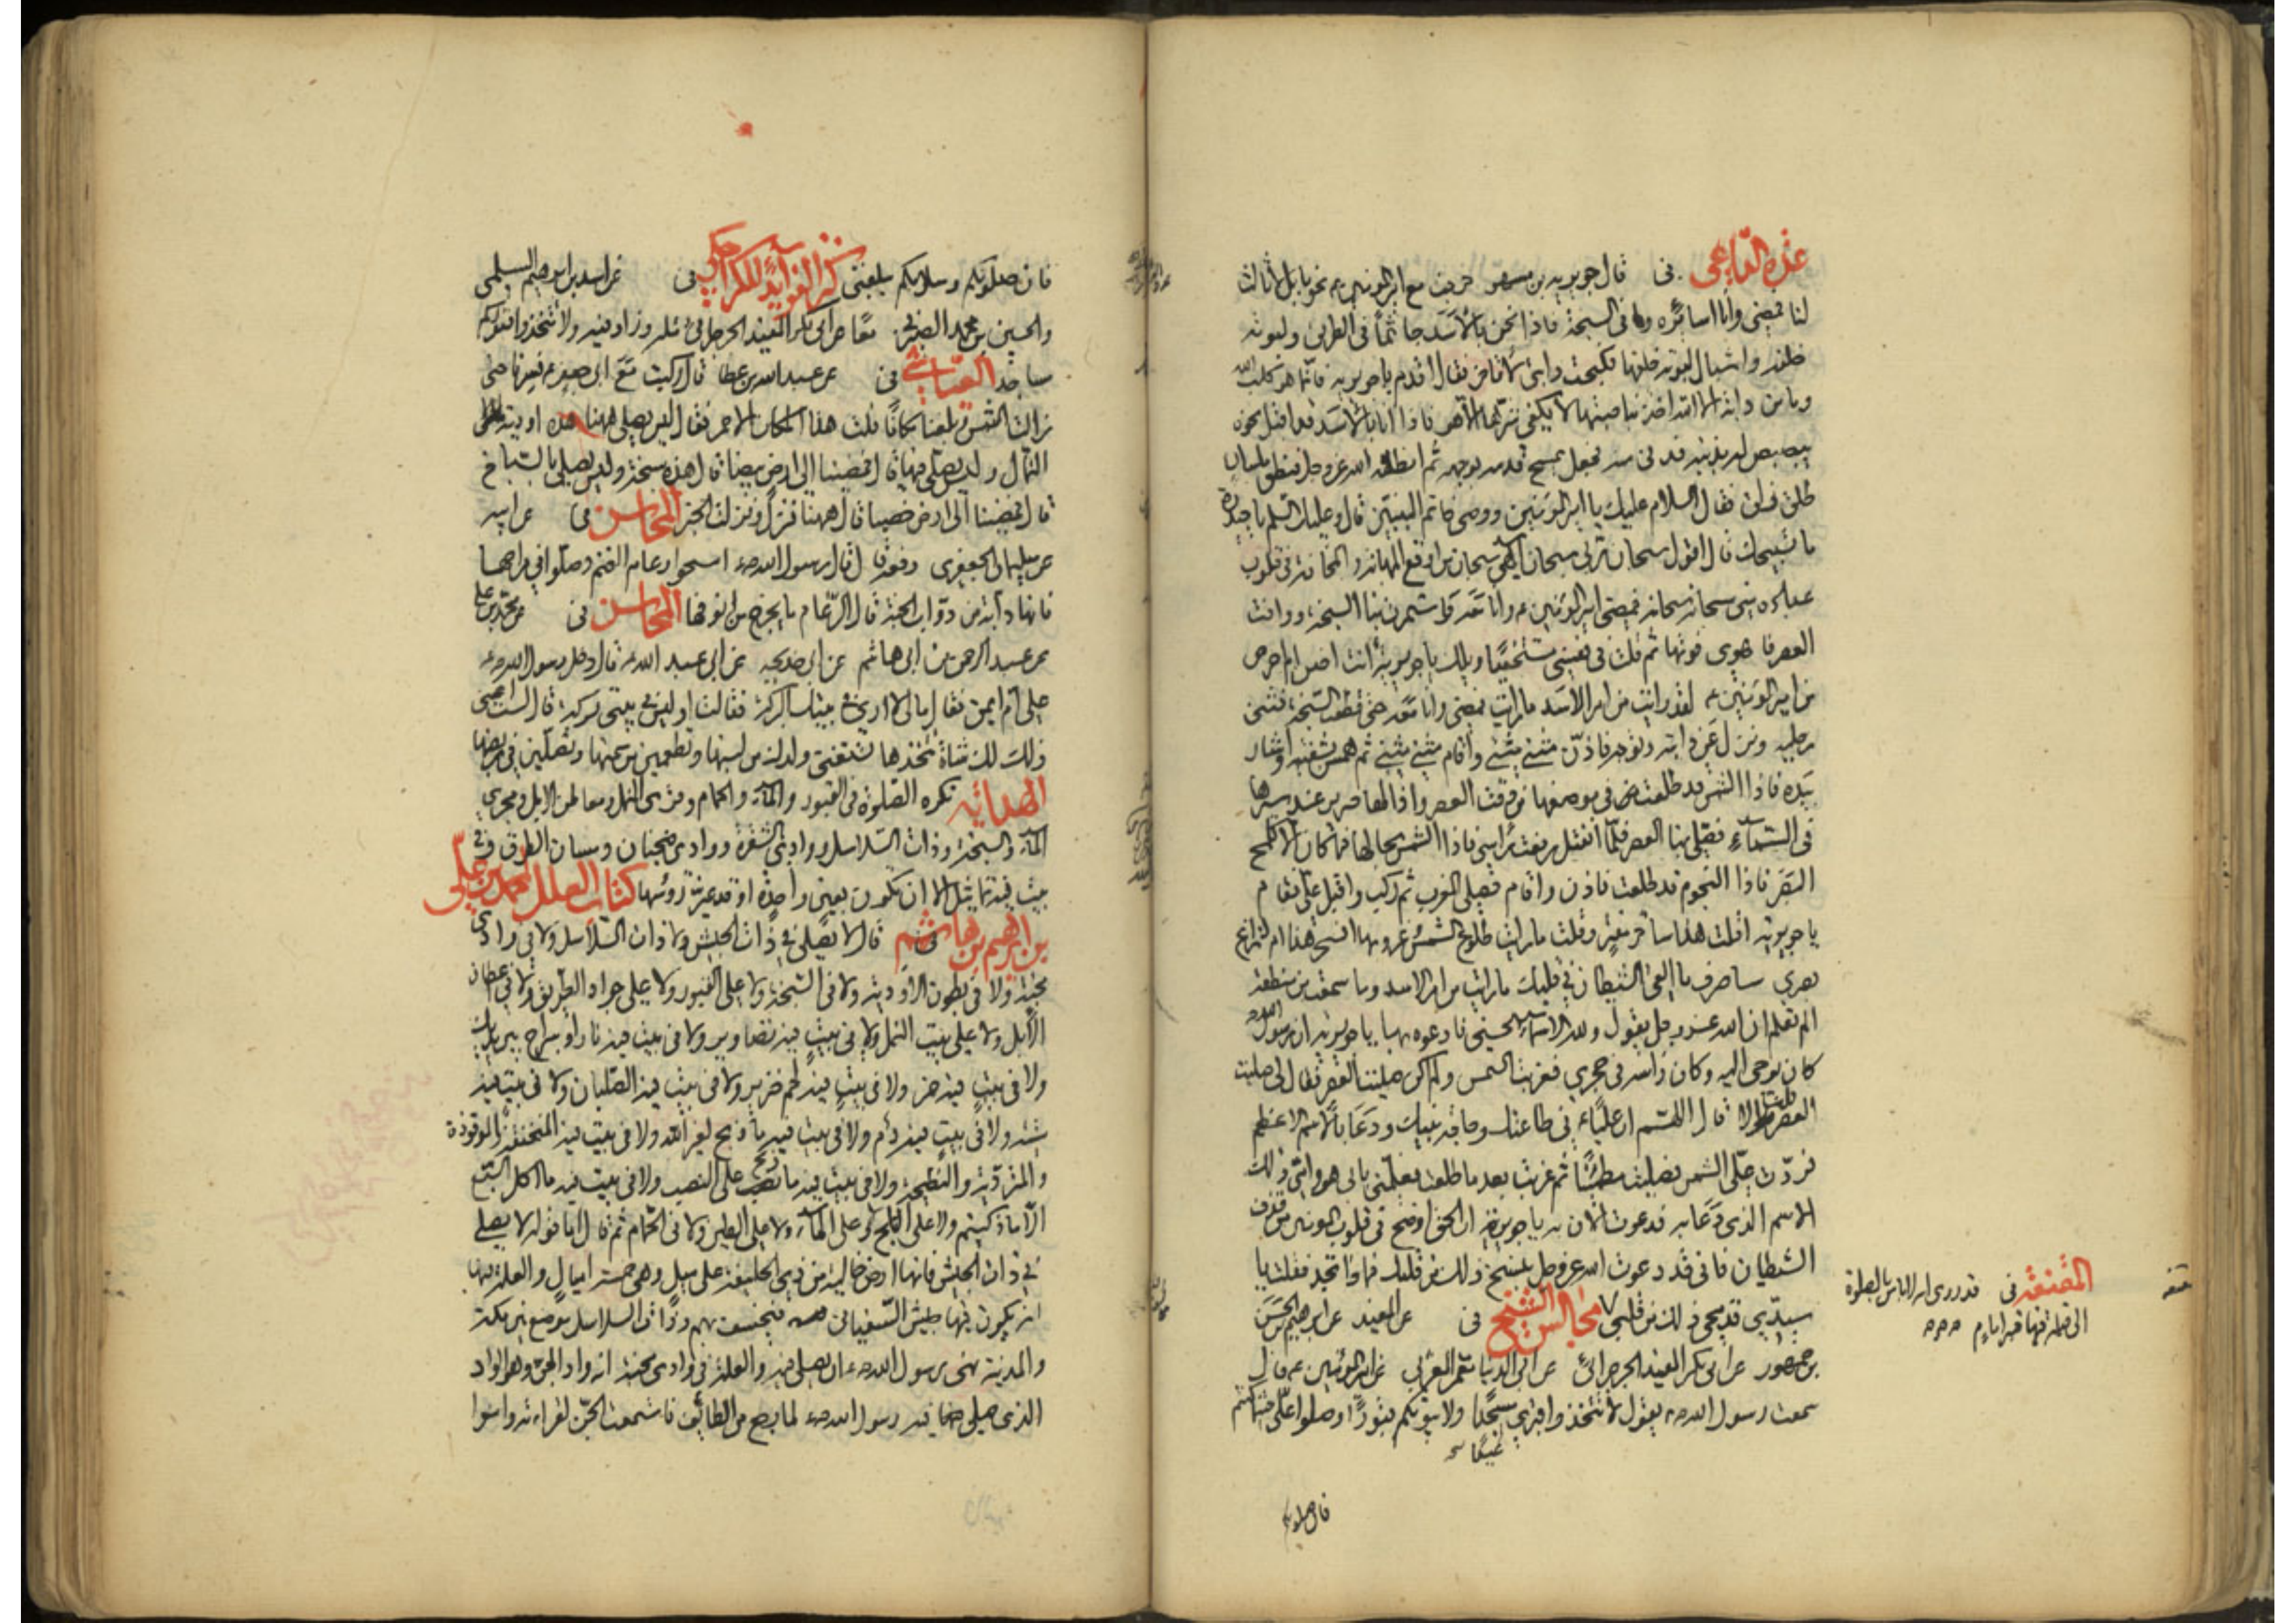 عدة الداعي فى قال جويرية بن مسهر خرجت مع امير المؤمنين ع نحو بابل لا ثالث
لنا فمضى وانا اسائره فى السبخة فاذا نحن بالأسد جاثماً فى الطريق ولبوته
خلفه واشبال لبوته خلفها فكبحت دابتى لأتأخر فقال اقدم يا جويرية فانما هو كلب الله
وما من دابة الا الله اخذ بناصيتها لا يكفى شرها الا هو فاذا انا بالأسد قد اقبل نحوه
يبصبص له بذنبه فدنى منه فجعل يمسح قدمه بوجهه ثم انطقه الله عز وجل فنطق بلسان
طلق ذلق فقال السلام عليك يا امير المؤمنين ووصى خاتم النبيين قال وعليك السلم يا حيدرة
ما تسبيحك قال اقول سبحان ربى سبحان الهى سبحان من اوقع المهابة والمخافة فى قلوب
عباده منى سبحانه سبحانه فمضى امير المؤمنين ع وانا معه واستمرت بنا السبخة ووافت
العصر فاهوى فوتها ثم قلت فى نفسى مستخفياً ويلك يا جويرية أانت اضن ام احرص
من امير المؤمنين ع لقد رايت من امر الأسد ما رايت فمضى وانا معه حتى قطع السبخة فثنى
رجليه ونزل عن دابته وتوجه فاذن مثنى مثنى واقام مثنى مثنى ثم همس بشفتيه واشار
بيده فاذا الشمس قد طلعت فى موضعها من وقت العصر واذا لها صرير عند سيرها
فى السماء فصلى بنا العصر فلما انفتل رفعت راسى فاذا الشمس بحالها فما كان الا كلمح
البصر فاذا النجوم قد طلعت فاذن واقام فصلى المغرب ثم ركب واقبل على فقال
يا جويرية اقلت هذا ساحر مفتر وقلت ما رايت طلوع الشمس وغروبها افسحر هذا ام زاغ
بصرى ساصرف ما القى الشيطان فى قلبك ما رايت من امر الاسد وما سمعت من منطقه
الم تعلم ان الله عز وجل يقول ولله الأسماء الحسنى فادعوه بها يا جويرية ان رسول الله ص
كان يوحى اليه وكان راسه فى حجرى فغربت الشمس ولم اكن صليت العصر فقال لى صليت
العصر قلت لا قال اللهم ان علياً ع فى طاعتك وحاجة نبيك ودعا بالأسم الاعظم
فردت على الشمس فصليت مطمئناً ثم غربت بعد ما طلعت فعلمنى بابى هو وامى ذلك
الاسم الذى دعا به فدعوت الآن به يا جويرية ان الحق اوضح فى قلوب المؤمنين من قذف
الشيطان فانى قد دعوت الله عز وجل بنسخ ذلك من قلبك فماذا تجد فقلت يا
سيدى قد محى ذلك من قلبى مجالس الشيخ فى عن المفيد عن ابرهيم بن الحسن
بن جمهور عن ابى بكر المفيد الجرجرائى عن ابى الدنيا المعمر المغربى عن امير المؤمنين ع قال
سمعت رسول الله ص يقول لا تتخذوا قبرى مسجداً ولا بيوتكم قبوراً وصلوا على حيثما كنتم
المقنعة فى قد روى انه لا باس بالصلوة
الى قبلة فيها قبر امام
فان صلوتكم
فان صلوتكم وسلامكم يبلغنى كنز الفوائد للكراجكى فى عن اسد بن ابرهيم السلمى
والحسين بن محمد الصيرفى معاً عن ابى بكر المفيد الجرجرائى مثله وزاد فيه ولا تتخذوا قبوركم
مساجد العياشى فى عن عبد الله بن عطا قال ركبت مع ابى جعفر ع فسرنا حتى
زالت الشمس وبلغنا مكاناً قلت هذا المكان الاحمر فقال ليس يصلى ههنا هذه اودية
النمال وليس يصلى فيها قال فمضينا الى ارض بيضا قال هذه سبخة وليس يصلى بالسباخ
قال فمضينا الى ارض حصبا قال ههنا فنزل ونزلت الخبر المحاسن فى عن ابيه
عن سليمان الجعفرى رفعه قال قال رسول الله ص امسحوا رغام الغنم وصلوا فى مراحها
فانها دابة من دواب الجنة قال الرغام ما يخرج من انوفها المحاسن فى عن محمد بن على
عن عبد الرحمن بن ابى هاشم عن ابى خديجة عن ابى عبد الله ع قال دخل رسول الله ص
على ام ايمن فقال ما لى لا ارى فى بيتك البركة فقالت او ليس فى بيتى بركة قال لست اعنى
ذلك لك شاة تتخذها تستغنى ولدك من لبنها وتطعمين من سمنها وتصلين فى مربضها
الهداية تكره الصلوة فى القبور والماء والحمام وقرى النمل ومعاطن الابل ومجرى
الماء والسبخة وذات السلاسل ووادى الشقرة ووادى ضجنان ومسان الطرق وفى
بيت فيه تماثيل الا ان تكون بعين واحدة او قد غيرت رؤسها كتاب العلل لمحمد بن على
بن ابرهيم بن هاشم فى قال لا يصلى فى ذات الجيش ولا ذات السلاسل ولا فى وادى
مجنة ولا فى بطون الأودية ولا فى السبخة ولا على القبور ولا على جواد الطريق ولا فى اعطان
الأبل ولا على بيت النمل ولا فى بيت فيه تصاوير ولا فى بيت فيه نار او سراج بين يديك
ولا فى بيت فيه خمر ولا فى بيت فيه لحم خنزير ولا فى بيت فيه الصلبان ولا فى بيت فيه
ميتة ولا فى بيت فيه دم ولا فى بيت فيه ما ذبح لغير الله ولا فى بيت فيه المنخنقة والموقوذة
والمتردية والنطيحة ولا فى بيت فيه ما ذبح على النصب ولا فى بيت فيه ما اكل السبع
الا ما ذكيتم ولا على الثلج ولا على الماء ولا على الطين ولا فى الحمام ثم قال اما قوله لا يصلى
فى ذات الجيش فانها ارض خالية من ذى الحليفة على ميل وهى خمسة اميال والعلة فيها
انه يكون فيها جيش السفيانى فيخسف بهم وذات السلاسل موضع بين مكة
والمدينة نهى رسول الله ص ان يصلى فيه والعلة فى وادى مجنة انه واد الجن وهو الواد
الذى صلى فيه رسول الله ص لما رجع من الطائف فاستمعت الجن لقراءته وامنوا